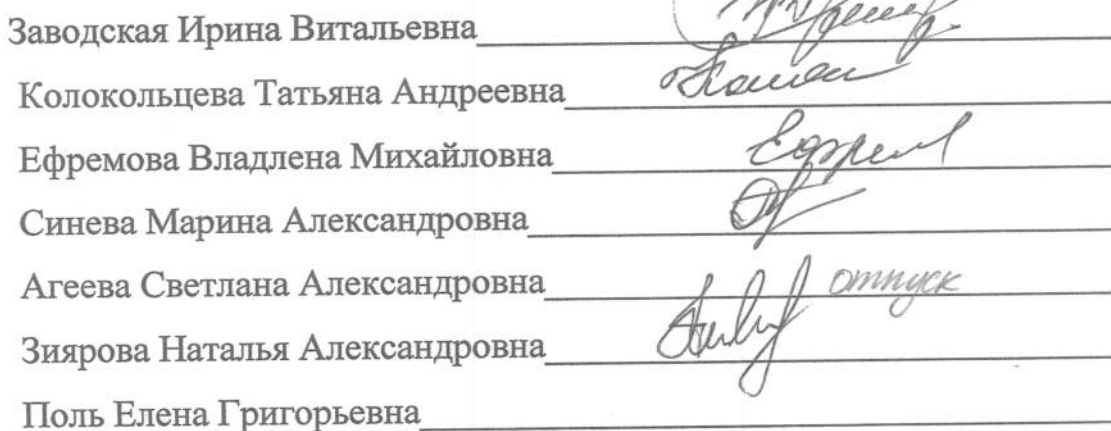 Заводская Ирина Витальевна
Колокольцева Татьяна Андреевна
Ефремова Владлена Михайловна
Синева Марина Александровна
Агеева Светлана Александровна отпуск
Зиярова Наталья Александровна
Поль Елена Григорьевна